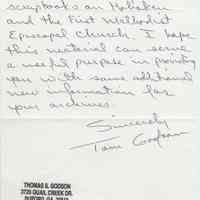 scrapbooks on Hoboken
and the First Methodist
Episcopal Church. I hope
this material can serve
a useful purpose in providing
you with some additional
new information for
your archives.
Sincerely
Tom Godson
THOMAS B. GODSON
3720 QUAIL CREEK DR.
BUFORD, GA.